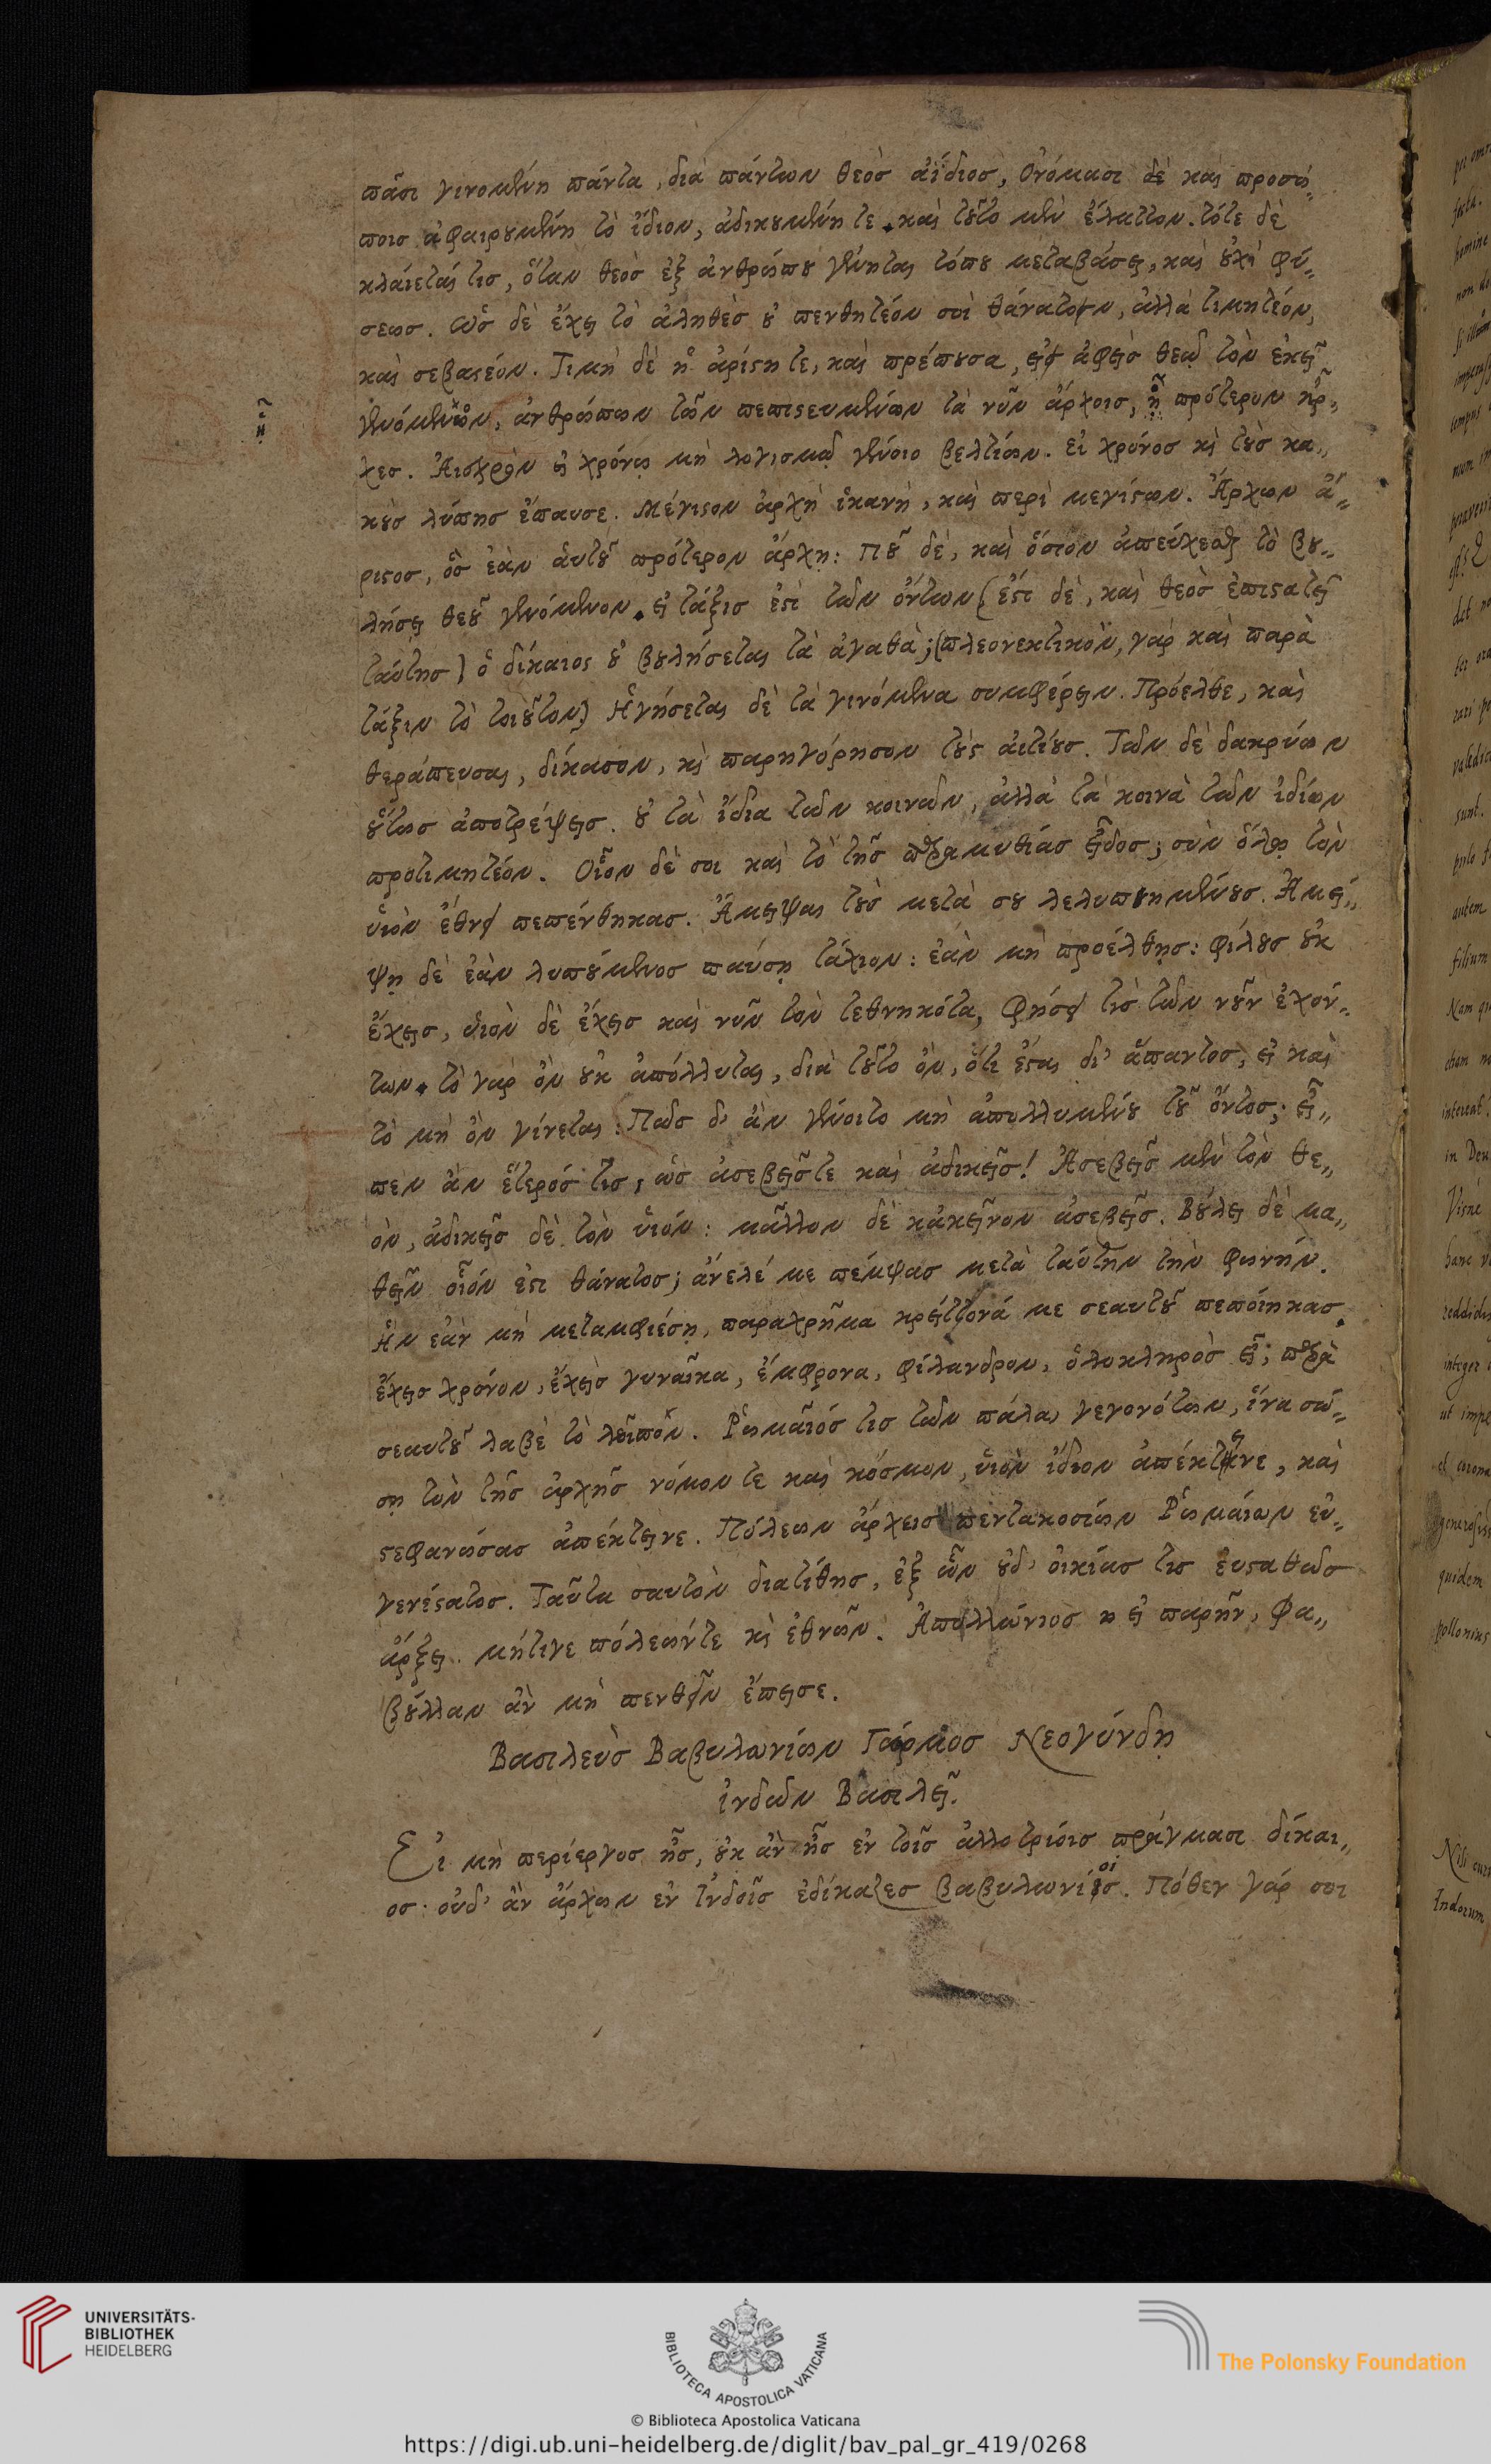 πᾶσι γινομένη πάντα, διὰ πάντων θεὸσ ἀΐδιοσ, Ὀνόμασι δὲ καὶ προσώ„
ποισ ἀφαιρουμένη τὸ ἴδιον, ἀδικουμένη τε. καὶ τοῦτο μὲν ἔλαττον. τότε δὲ
κλαίεταί τισ, ὅταν θεὸσ ἐξ ἀνθρώπου γένηται τόπου μεταβάσει, καὶ οὐχὶ φύ„
σεωσ. Ὡσ δὲ ἔχει τὸ ἀληθὲσ οὐ πενθητέον σοὶ θάνατον, ἀλλὰ τιμητέον,
καὶ σεβαστέον. Τιμὴ δὲ ἡ ἀρίστη τε, καὶ πρέπουσα, εἰσ ἀφεὶσ θεῷ τὸν ἐκεῖ
γενόμενον, ἀνθρώπων τῶν πεπιστευμένων τὰ νῦν ἄρχοισ, ᾗ πρότερον ἦρ„
χεσ. Αἰσχρὸν εἰ χρόνῳ μὴ λογισμῷ γένοιο βελτίων. εἰ χρόνοσ κὶ τοὺσ κα„
κοὺσ λύπησ ἔπαυσε. Μέγιστον ἀρχὴ ἱκανὴ, καὶ περὶ μεγίστων. Ἄρχων ἄ„
ριστοσ, ὃσ ἐὰν αὑτοῦ πρότερον ἄρχῃ: Ποῦ δὲ, καὶ ὅσιον ἀπεύχεσθαι τὸ βου„
λήσει θεοῦ γενόμενον. εἰ τάξισ ἐστὶ τῶν ὄντων (ἔστι δὲ, καὶ θεὸσ ἐπιστατεῖ
ταύτησ) ὁ δίκαιος οὐ βουλήσεται τὰ ἀγαθὰ; (πλεονεκτικὸν, γὰρ καὶ παρὰ
τάξιν τὸ τοιοῦτον) Ἡγήσεται δὲ τὰ γινόμενα συμφέρειν. Πρόελθε, καὶ
θεράπευσαι, δίκασον, κὶ παρηγόρησον τοὺς ἀιτίουσ. Τῶν δὲ δακρύων
οὕτωσ ἀποτρέψεισ. οὐ τὰ ἴδια τῶν κοινῶν, ἀλλὰ τὰ κοινὰ τῶν ἰδίων
προτιμητέον. Οἷον δὲ σοι καὶ τὸ τῆσ παραμυθίασ εἶδοσ; σὺν ὅλῳ τὸν
ὑιὸν ἔθνει πεπένθηκασ. Ἄμειψαι τοὺσ μετὰ σου λελυπουημένουσ. Ἀμεί„
ψῃ δὲ ἐὰν λυπούμενοσ παύσῃ τάχιον: ἐὰν μὴ προέλθῃσ: φίλουσ οὐκ
ἔχεισ, ὑιὸν δὲ ἔχεισ καὶ νῦν τὸν τεθνηκότα, φήσει τὶσ τῶν νοῦν ἐχόν„
των. τὸ γὰρ ὂν οὐκ ἀπόλλυται, διὰ τοῦτο ὂν, ὅτι ἔσται δι' ἅπαντοσ, εἰ καὶ
τὸ μὴ ὂν γίνεται: Πῶσ δ' ἂν γένοιτο μὴ ἀπολλυμένου τοῦ ὄντοσ; εἶ„
πεν ἂν ἕτερόσ τισ, ὡσ ἀσεβεῖστε καὶ ἀδικεῖσ! Ἀσεβεῖσ μὲν τὸν θε„
ὸν, ἀδικεῖσ δὲ τὸν ὑιόν: μᾶλλον δὲ κἀκεῖνον ἀσεβεῖσ. Βούλει δὲ μα„
θεῖν οἷόν ἐστι θάνατοσ; ἄνελέ με πέμψασ μετὰ ταύτην τὴν φωνήν.
Ἣν ἐὰν μὴ μεταμφιέσῃ, παραχρῆμα κρείττονά με σεαυτοῦ πεποίηκασ.
ἔχεισ χρόνον, ἔχεισ γυναῖκα, ἔμφρονα, φίλανδρον, ὁλοκληρὸσ εἶ; παρὰ
σεαυτοῦ λαβὲ τὸ λοιπὸν. Ῥωμαῖόσ τισ τῶν πάλαι γεγονότων, ἵνα σώ„
σῃ τὸν τῆσ ἀρχῆσ νόμον τε καὶ κόσμον, ὑιὸν ἴδιον ἀπέκτεινε, καὶ
στεφανώσασ ἀπέκτεινε. Πόλεων ἄρχεισ πεντακοσίων Ῥωμαίων εὐ„
γενέστατοσ. Ταῦτα σαυτὸν διατίθησ, ἐξ ὧν οὐδ' ὀικίασ τισ ἐυσταθῶσ
ἄρξει. μήτιγε πόλεώντε κὶ ἐθνῶν. Ἀπολλώνιοσ ἢ εἰ παρῆν, Φα„
βούλλαν ἂν μὴ πενθεῖν ἔπεισε.
Βασιλεὺσ Βαβυλωνίων Γάρμοσ Νεογύνδῃ
ἰνδῶν Βασιλεῖ.
Εἰ μὴ περίεργοσ ἦσ, οὐκ ἂν ἦσ ἐν τοῖσ ἀλλοτρίοισ πράγμασι δίκαι„
οσ· οὐδ' ἂν ἄρχων ἐν ἰνδοῖσ ἐδίκαζεσ βαβυλωνίοισ. Πόθεν γάρ σοι
UNIVERSITÄTS-
BIBLIOTHEK
HEIDELBERG
BIBLIOTECA APOSTOLICA VATICANA
The Polonsky Foundation
© Biblioteca Apostolica Vaticana
https://digi.ub.uni-heidelberg.de/diglit/bav_pal_gr_419/0268